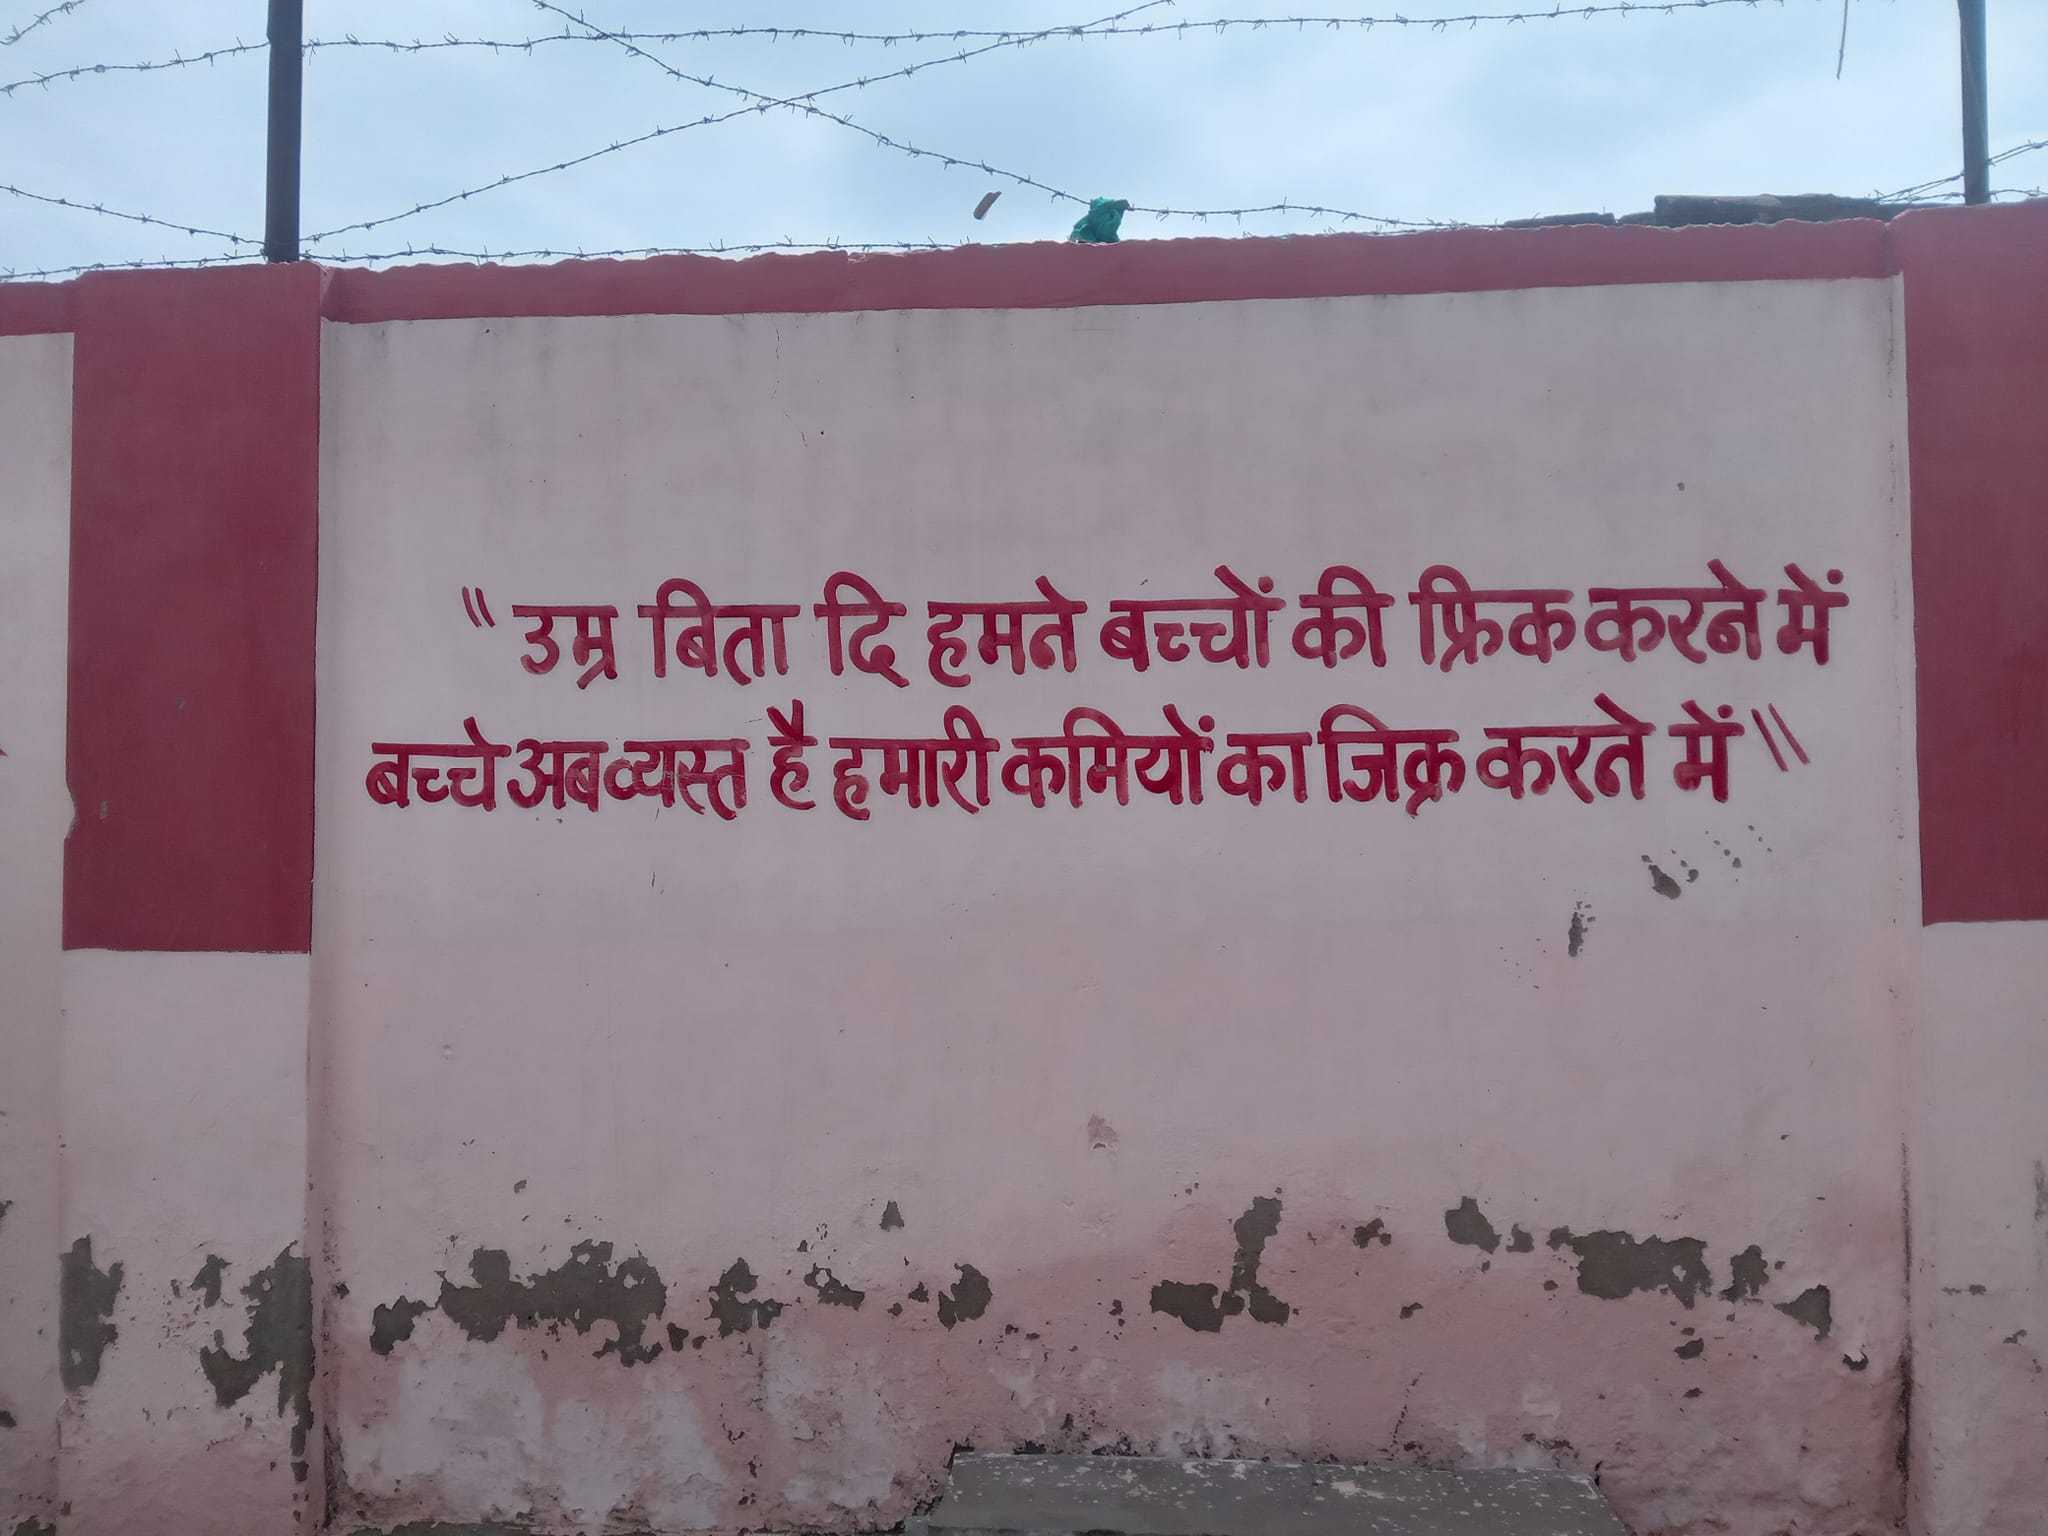 "उम्र बिता दि हमने बच्चों की फ्रिक करने में
बच्चे अब व्यस्त है हमारी कमियों का जिक्र करते में"